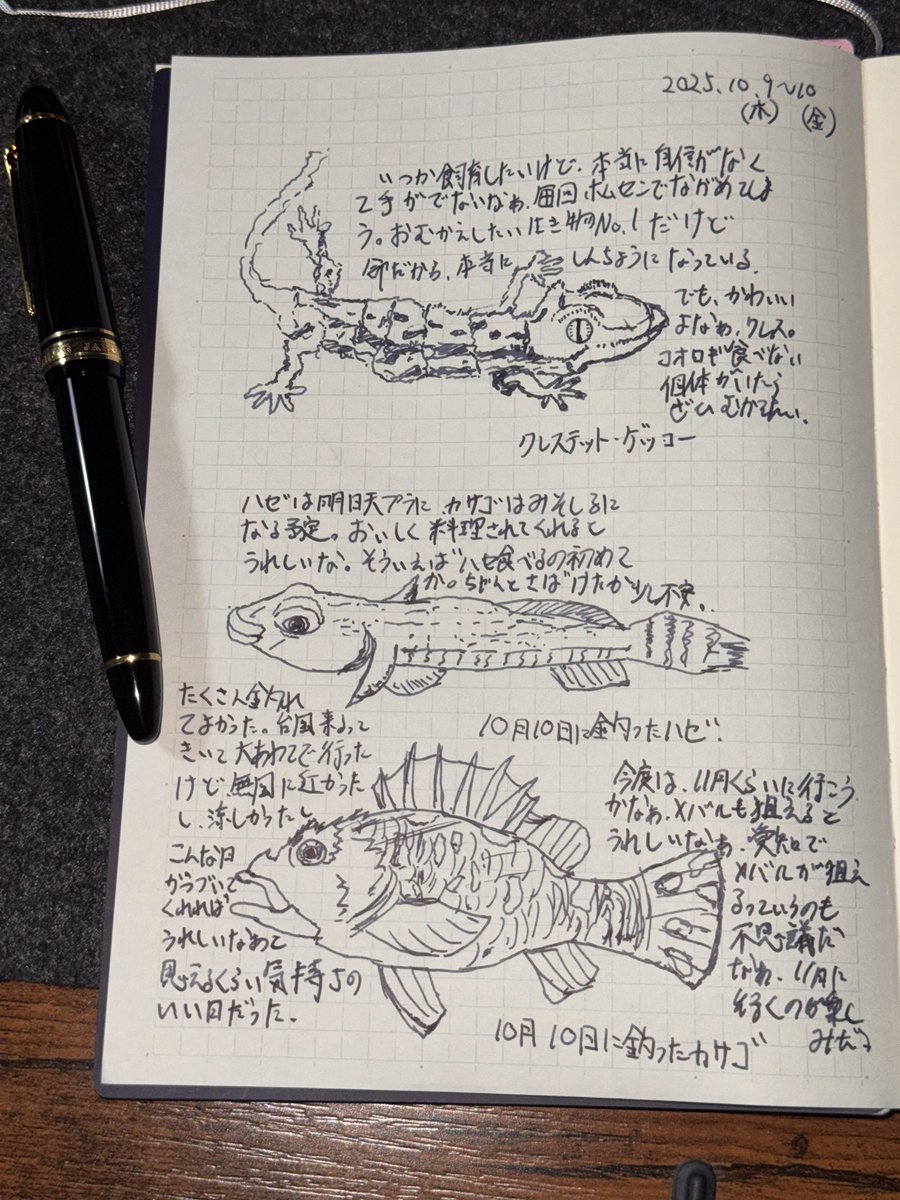 2025.10.9〜10
(木) (金)
いつか飼育したいけど、本当に自信がなく
て手がでないなぁ。毎回ホムセンでながめてしま
う。おむかえしたい生き物No.1だけど
命だから、本当に しんちょうになっている。
でも、かわいい
よなぁ、クレス。
コオロギ食べない
個体がいたら
ぜひむかえたい。
クレステット・ゲッコー
ハゼは明日天プラに カサゴはみそしるに
なる予定。おいしく料理されてくれると
うれしいな。そういえばハゼ食べるの初めて
か。ちゃんとさばけたか少し不安。
10月10日に釣ったハゼ
たくさん釣れ
てよかった。台風来るって
きいて大あわてで行った
けど無風に近かった
し、涼しかったし
こんな日
がつづいて
くれれば
うれしいなあって
思えるくらい気持ちの
いい日だった。
今度は、11月くらいに行こう
かなぁ。メバルも狙えると
うれしいなぁ。愛知で
メバルが狙え
るっていうのも
不思議だ
なぁ。11月に
行くのが楽し
みだ。
10月10日に釣ったカサゴ